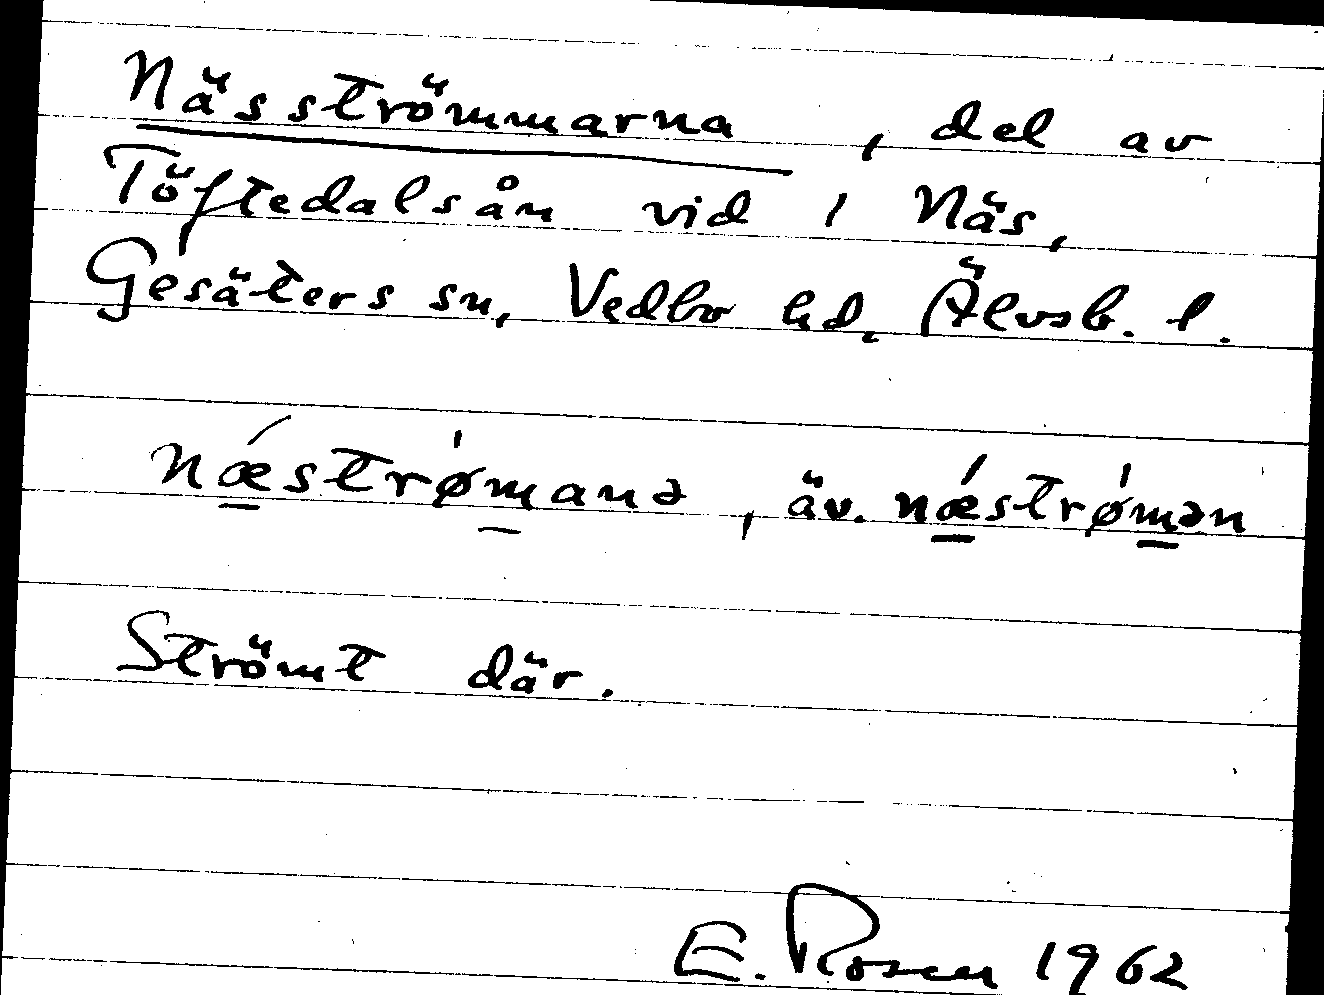 Näsströmmarna, del av
Töftedalsån vid 1 Näs,
Gesäters sn, Vedbo hd, Älvsb. l.
nǽ̱strø̍m̱anə, äv. nǽ̱strø̍m̱ən
Strömt där.
E. Rosen 1962